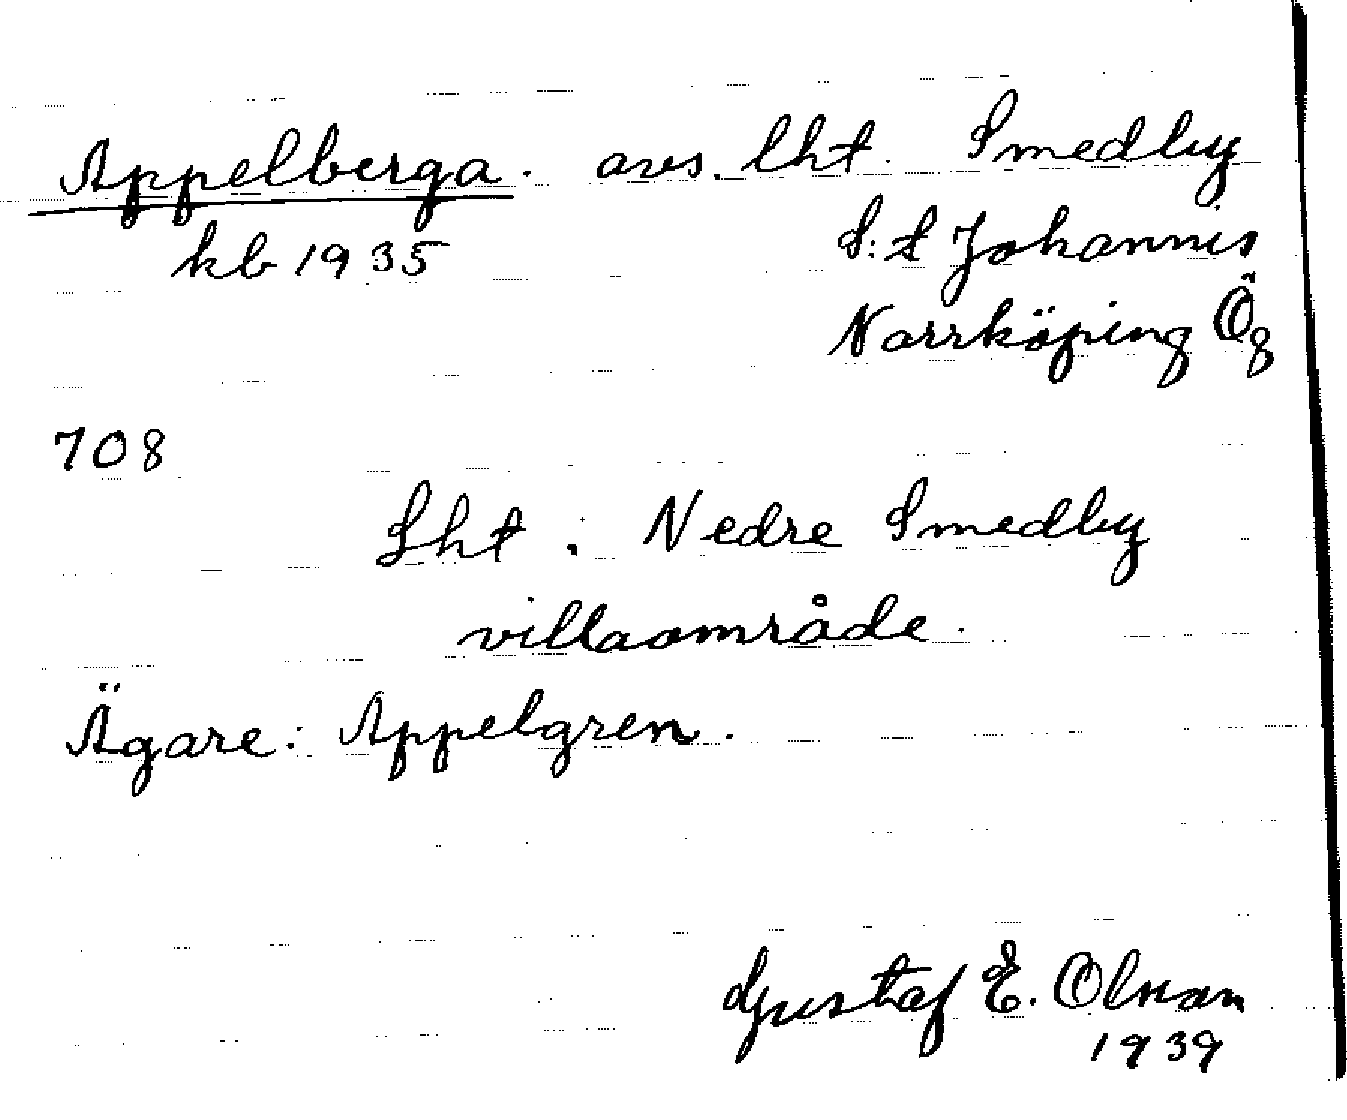 Appelberga. avs. lht. Smedby
kb 1935 S:t Johannis
Norrköping Ög
708
Lht: Nedre Smedby
villaområde.
Ägare: Appelgren.
Gustaf E. Olsson
1939